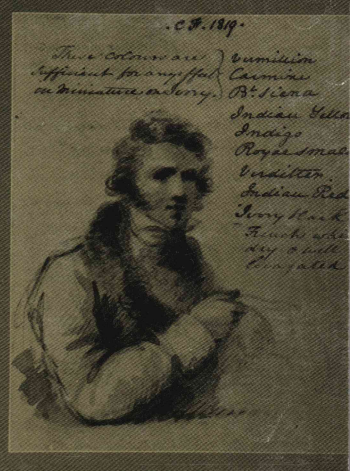 . C F. 1819 .
These Colours are
Sufficient for any effect
on Miniature or Ivory.
Vermillion
Carmine
Bt. Siena
Indian Yello
Indigo
Royal smal
Verditter
Indian Red
Ivory Black
French whi
dry & well